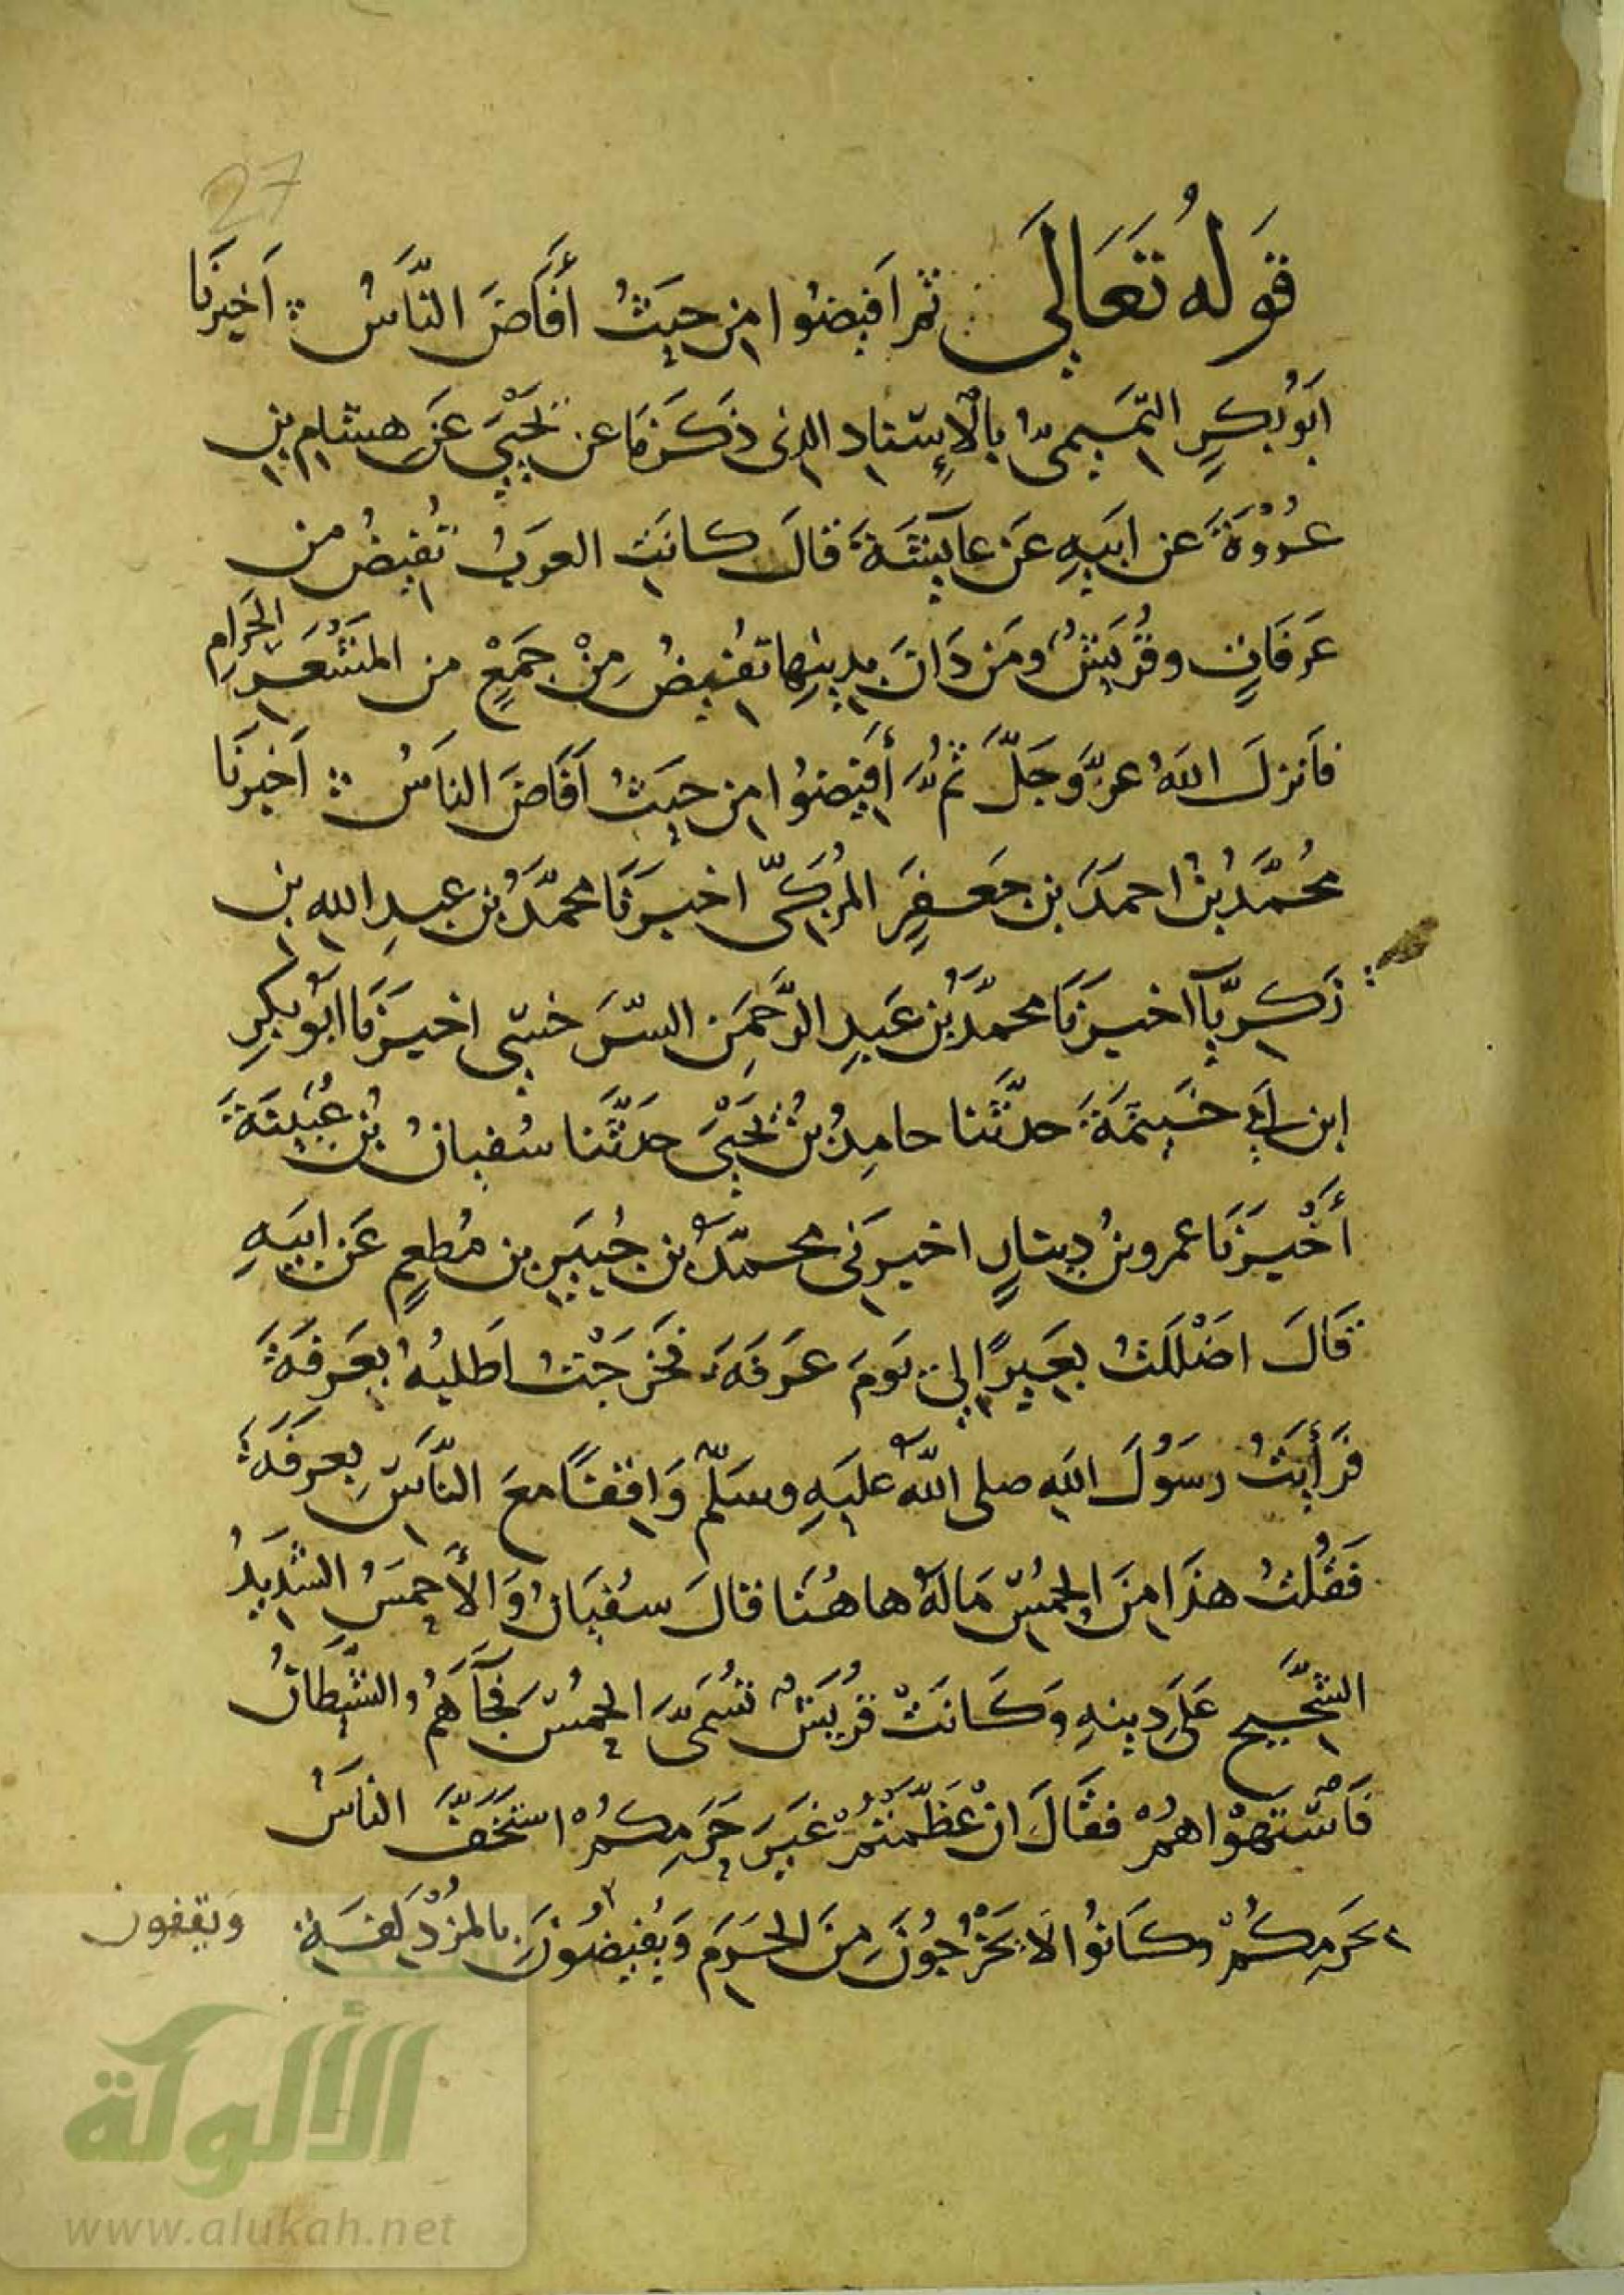 27
قَولهُ تَعَالَى ثم افيضوا من حيثُ أَفَاضَ النَّاسُ اَخبرنَا
ابُو بكرٍ التّميميُّ بالإِسناد الذى ذكَرنَا عن يَحيَى عَن هشام بنِ
عُرْوَةَ عن ابيهِ عَن عايشَةَ قالَ كانت العربُ تُفيضُ من
عَرفَاتٍ وقُرَيشٌ ومَن دَانَ بدينِها تفيضُ مِنْ جَمْعٍ من المَشْعَرِ الحَرامِ
فانزلَ اللهُ عزَّ وَجَلَّ ثُمَّ أَفيضوا من حيثُ اَفَاضَ الناسُ اَخبرنَا
مُحمَّدُ بنُ احمدَ بن جَعفرَ المُزكّى اخبرَنَا محمّدُ بن عبدِ الله بن
زَكريَّآ اخبرَنَا محمدُ بن عَبدِ الرَّحمَنِ السَّرَخسى اخبرَنَا ابُو بكرِ
ابن ابى خَيثمَةَ حدَّثَنا حامدُ بنُ يَحيَى حَدَّثَنا سُفيانُ بن عُيَينةَ
أَخْبَرَنَا عمرو بنُ دينارٍ اخبرَنى محمّدُ بن جُبَيرِ بن مُطعِمٍ عَن ابيهِ
قَالَ اضْللتُ بعيرًا لى يَومَ عَرَفَةَ فخَرَجْتُ اطلبُهُ بِعَرفَةَ
فرَأَيتُ رسُولَ اللهِ صلى اللهُ عليهِ وسَلّم وَاقفًا معَ النَّاسِ بِعرفَةَ
فَقُلتُ هذَا منَ الحُمُسِ مَا لهُ هاهُنَا قالَ سفيَانُ وَالأَحمسُ الشديدُ
الشَّحيح عَلَى دينهِ وَكَانَتْ قُرَيشٌ تُسَمَّى الحُمُسَ فَجآءَهُمُ الشَّيطَانُ
فَاسْتهْوَاهمُ فقَالَ انْ عَظَّمْتُمْ غيَرَ حَرَمِكمُ اسْتَخَفَّ الناسُ
بحَرمِكُمْ وكَانُوا لَا يَخْرُجُونَ مِنَ الحَرَمِ وَيُفيضُونَ بالمزْدَلفَةِ
وَيَقفون
الألوكة
www.alukah.net